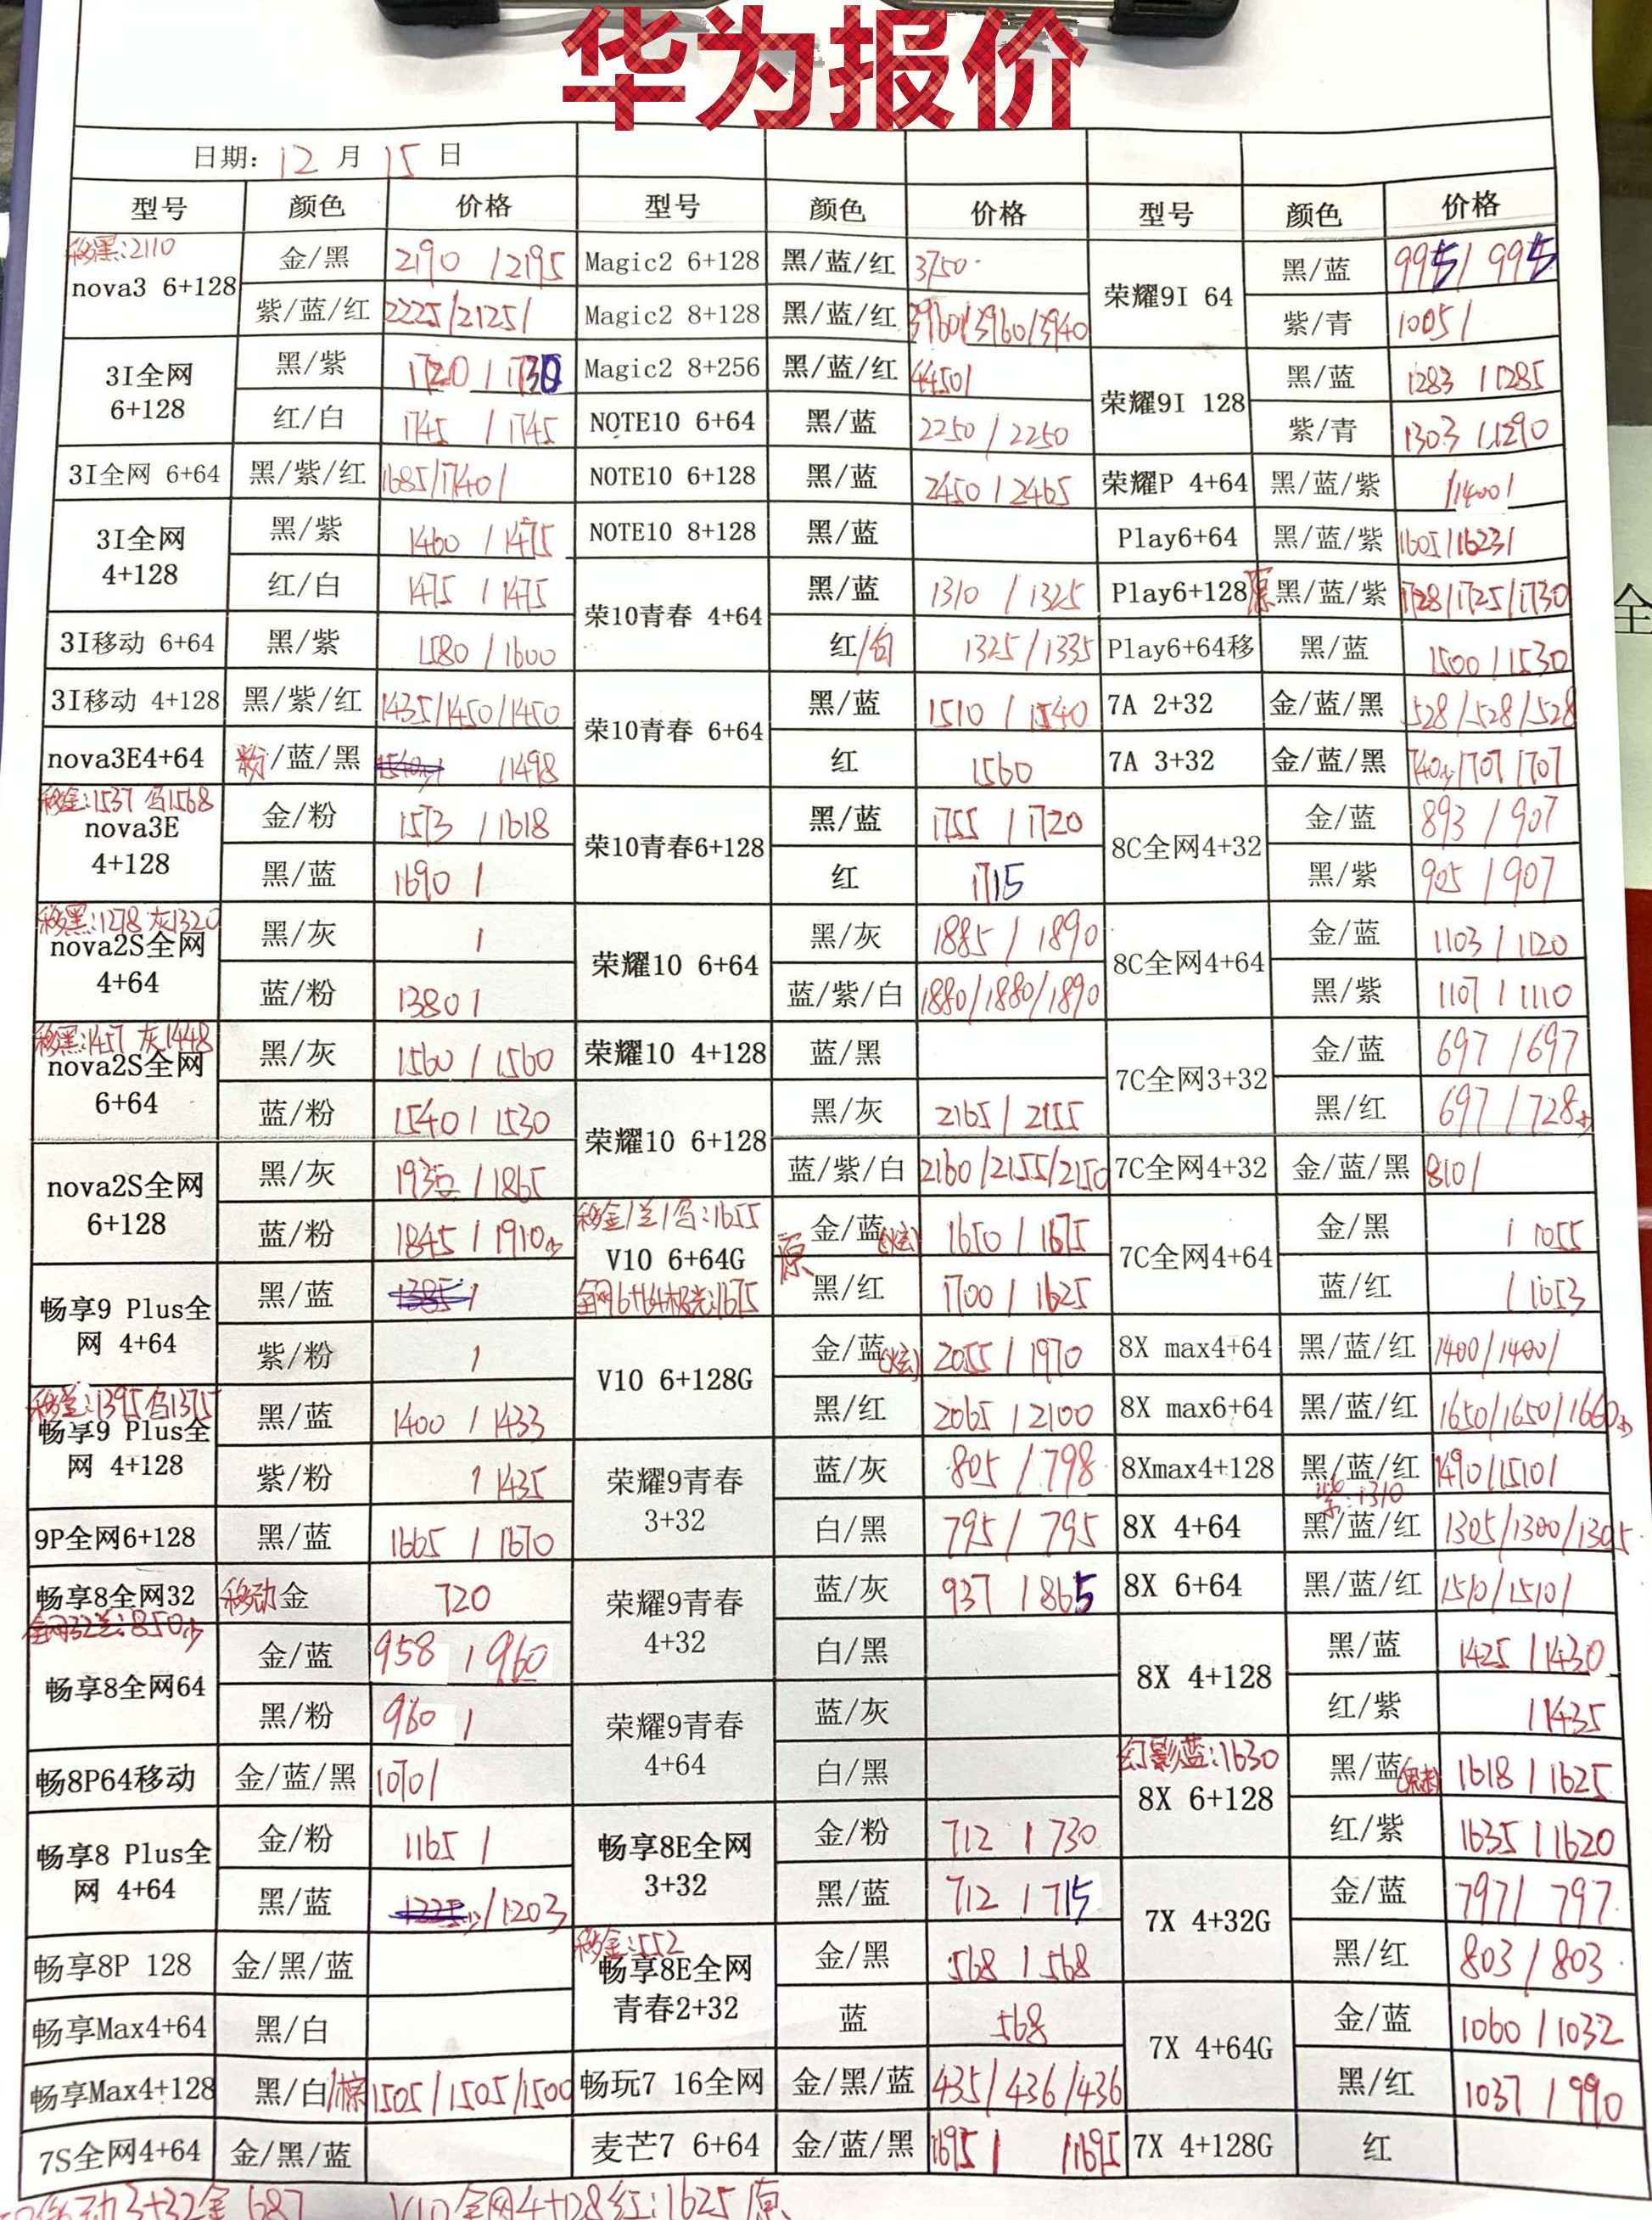 华为报价
日期: 12 月 15 日
型号 颜色 价格 型号 颜色 价格 型号 颜色 价格
移黑:2110
nova3 6+128 金/黑 2190 / 2195 Magic2 6+128 黑/蓝/红 3750 荣耀9I 64 黑/蓝 995 / 995
紫/蓝/红 2225/2125/ Magic2 8+128 黑/蓝/红 3960/3960/3940 紫/青 1005 /
3I全网 6+128 黑/紫 1720 / 1730 Magic2 8+256 黑/蓝/红 4450/ 荣耀9I 128 黑/蓝 1283 / 1285
红/白 1745 / 1745 NOTE10 6+64 黑/蓝 2250 / 2250 紫/青 1303 / 1290
3I全网 6+64 黑/紫/红 1685/1740/ NOTE10 6+128 黑/蓝 2450 / 2465 荣耀P 4+64 黑/蓝/紫 /1400/
3I全网 4+128 黑/紫 1460 / 1475 NOTE10 8+128 黑/蓝 Play6+64 黑/蓝/紫 1605/1623/
红/白 1475 / 1475 荣10青春 4+64 黑/蓝 1310 / 1325 Play6+128 原 黑/蓝/紫 1728/1725/1730
3I移动 6+64 黑/紫 1580 / 1600 红/白 1325 / 1335 Play6+64移 黑/蓝 1500 / 1530
3I移动 4+128 黑/紫/红 1435/1450/1450 荣10青春 6+64 黑/蓝 1510 / 1540 7A 2+32 金/蓝/黑 528/528/528
nova3E4+64 粉/蓝/黑 /1498 红 1560 7A 3+32 金/蓝/黑 740少/707/707
移金:1537 乌1568
nova3E 4+128 金/粉 1573 / 1618 荣10青春6+128 黑/蓝 1755 / 1720 8C全网4+32 金/蓝 893 / 907
黑/蓝 1690 / 红 1715 黑/紫 905 / 907
移黑:1278 灰1320
nova2S全网 4+64 黑/灰 / 荣耀10 6+64 黑/灰 1885 / 1890 8C全网4+64 金/蓝 1103 / 1120
蓝/粉 1380 / 蓝/紫/白 1880/1880/1890 黑/紫 1107 / 1110
移黑:1457 灰1448
nova2S全网 6+64 黑/灰 1560 / 1560 荣耀10 4+128 蓝/黑 7C全网3+32 金/蓝 697 / 697
蓝/粉 1540 / 1530 荣耀10 6+128 黑/灰 2165 / 2155 黑/红 697 / 728少
nova2S全网 6+128 黑/灰 1935 / 1865 蓝/紫/白 2160/2155/2150 7C全网4+32 金/蓝/黑 810/
移金/兰/乌:1655
蓝/粉 1845 / 1910少 V10 6+64G 原 金/蓝(炫) 1650 / 1675 7C全网4+64 金/黑 / 1055
全网6+64极光:1675
畅享9 Plus全网 4+64 黑/蓝 1385 / 黑/红 1700 / 1625 蓝/红 / 1053
紫/粉 / V10 6+128G 金/蓝(炫) 2055 / 1970 8X max4+64 黑/蓝/红 1400/1400/
移兰:1395 乌1375
畅享9 Plus全网 4+128 黑/蓝 1400 / 1433 黑/红 2065 / 2100 8X max6+64 黑/蓝/红 1650/1650/1660少
紫/粉 / 1435 荣耀9青春 3+32 蓝/灰 805 / 798 8Xmax4+128 黑/蓝/红 1490/1510/
紫:1310
9P全网6+128 黑/蓝 1665 / 1670 白/黑 795 / 795 8X 4+64 黑/蓝/红 1305/1300/1305
畅享8全网32 移动金 720 荣耀9青春 4+32 蓝/灰 937 / 865 8X 6+64 黑/蓝/红 1510/1510/
全网32兰:850少
畅享8全网64 金/蓝 958 / 960 白/黑 8X 4+128 黑/蓝 1425 / 1430
黑/粉 960 / 荣耀9青春 4+64 蓝/灰 红/紫 / 1435
幻影蓝:1630
畅8P64移动 金/蓝/黑 1070/ 白/黑 8X 6+128 黑/蓝 1618 / 1625
畅享8 Plus全网 4+64 金/粉 1165 / 畅享8E全网 3+32 金/粉 712 / 730 红/紫 1635 / 1620
黑/蓝 1225少/1203 黑/蓝 712 / 715 7X 4+32G 金/蓝 797 / 797
移金:552
畅享8P 128 金/黑/蓝 畅享8E全网 青春2+32 金/黑 568 / 568 黑/红 803 / 803
畅享Max4+64 黑/白 蓝 568 7X 4+64G 金/蓝 1060 / 1032
畅享Max4+128 黑/白/棕 1505/1505/1500 畅玩7 16全网 金/黑/蓝 435/436/436 黑/红 1037 / 990
7S全网4+64 金/黑/蓝 麦芒7 6+64 金/蓝/黑 1695/ /1695 7X 4+128G 红
移动3+32金 687 V10全网4+128红:1625原
全